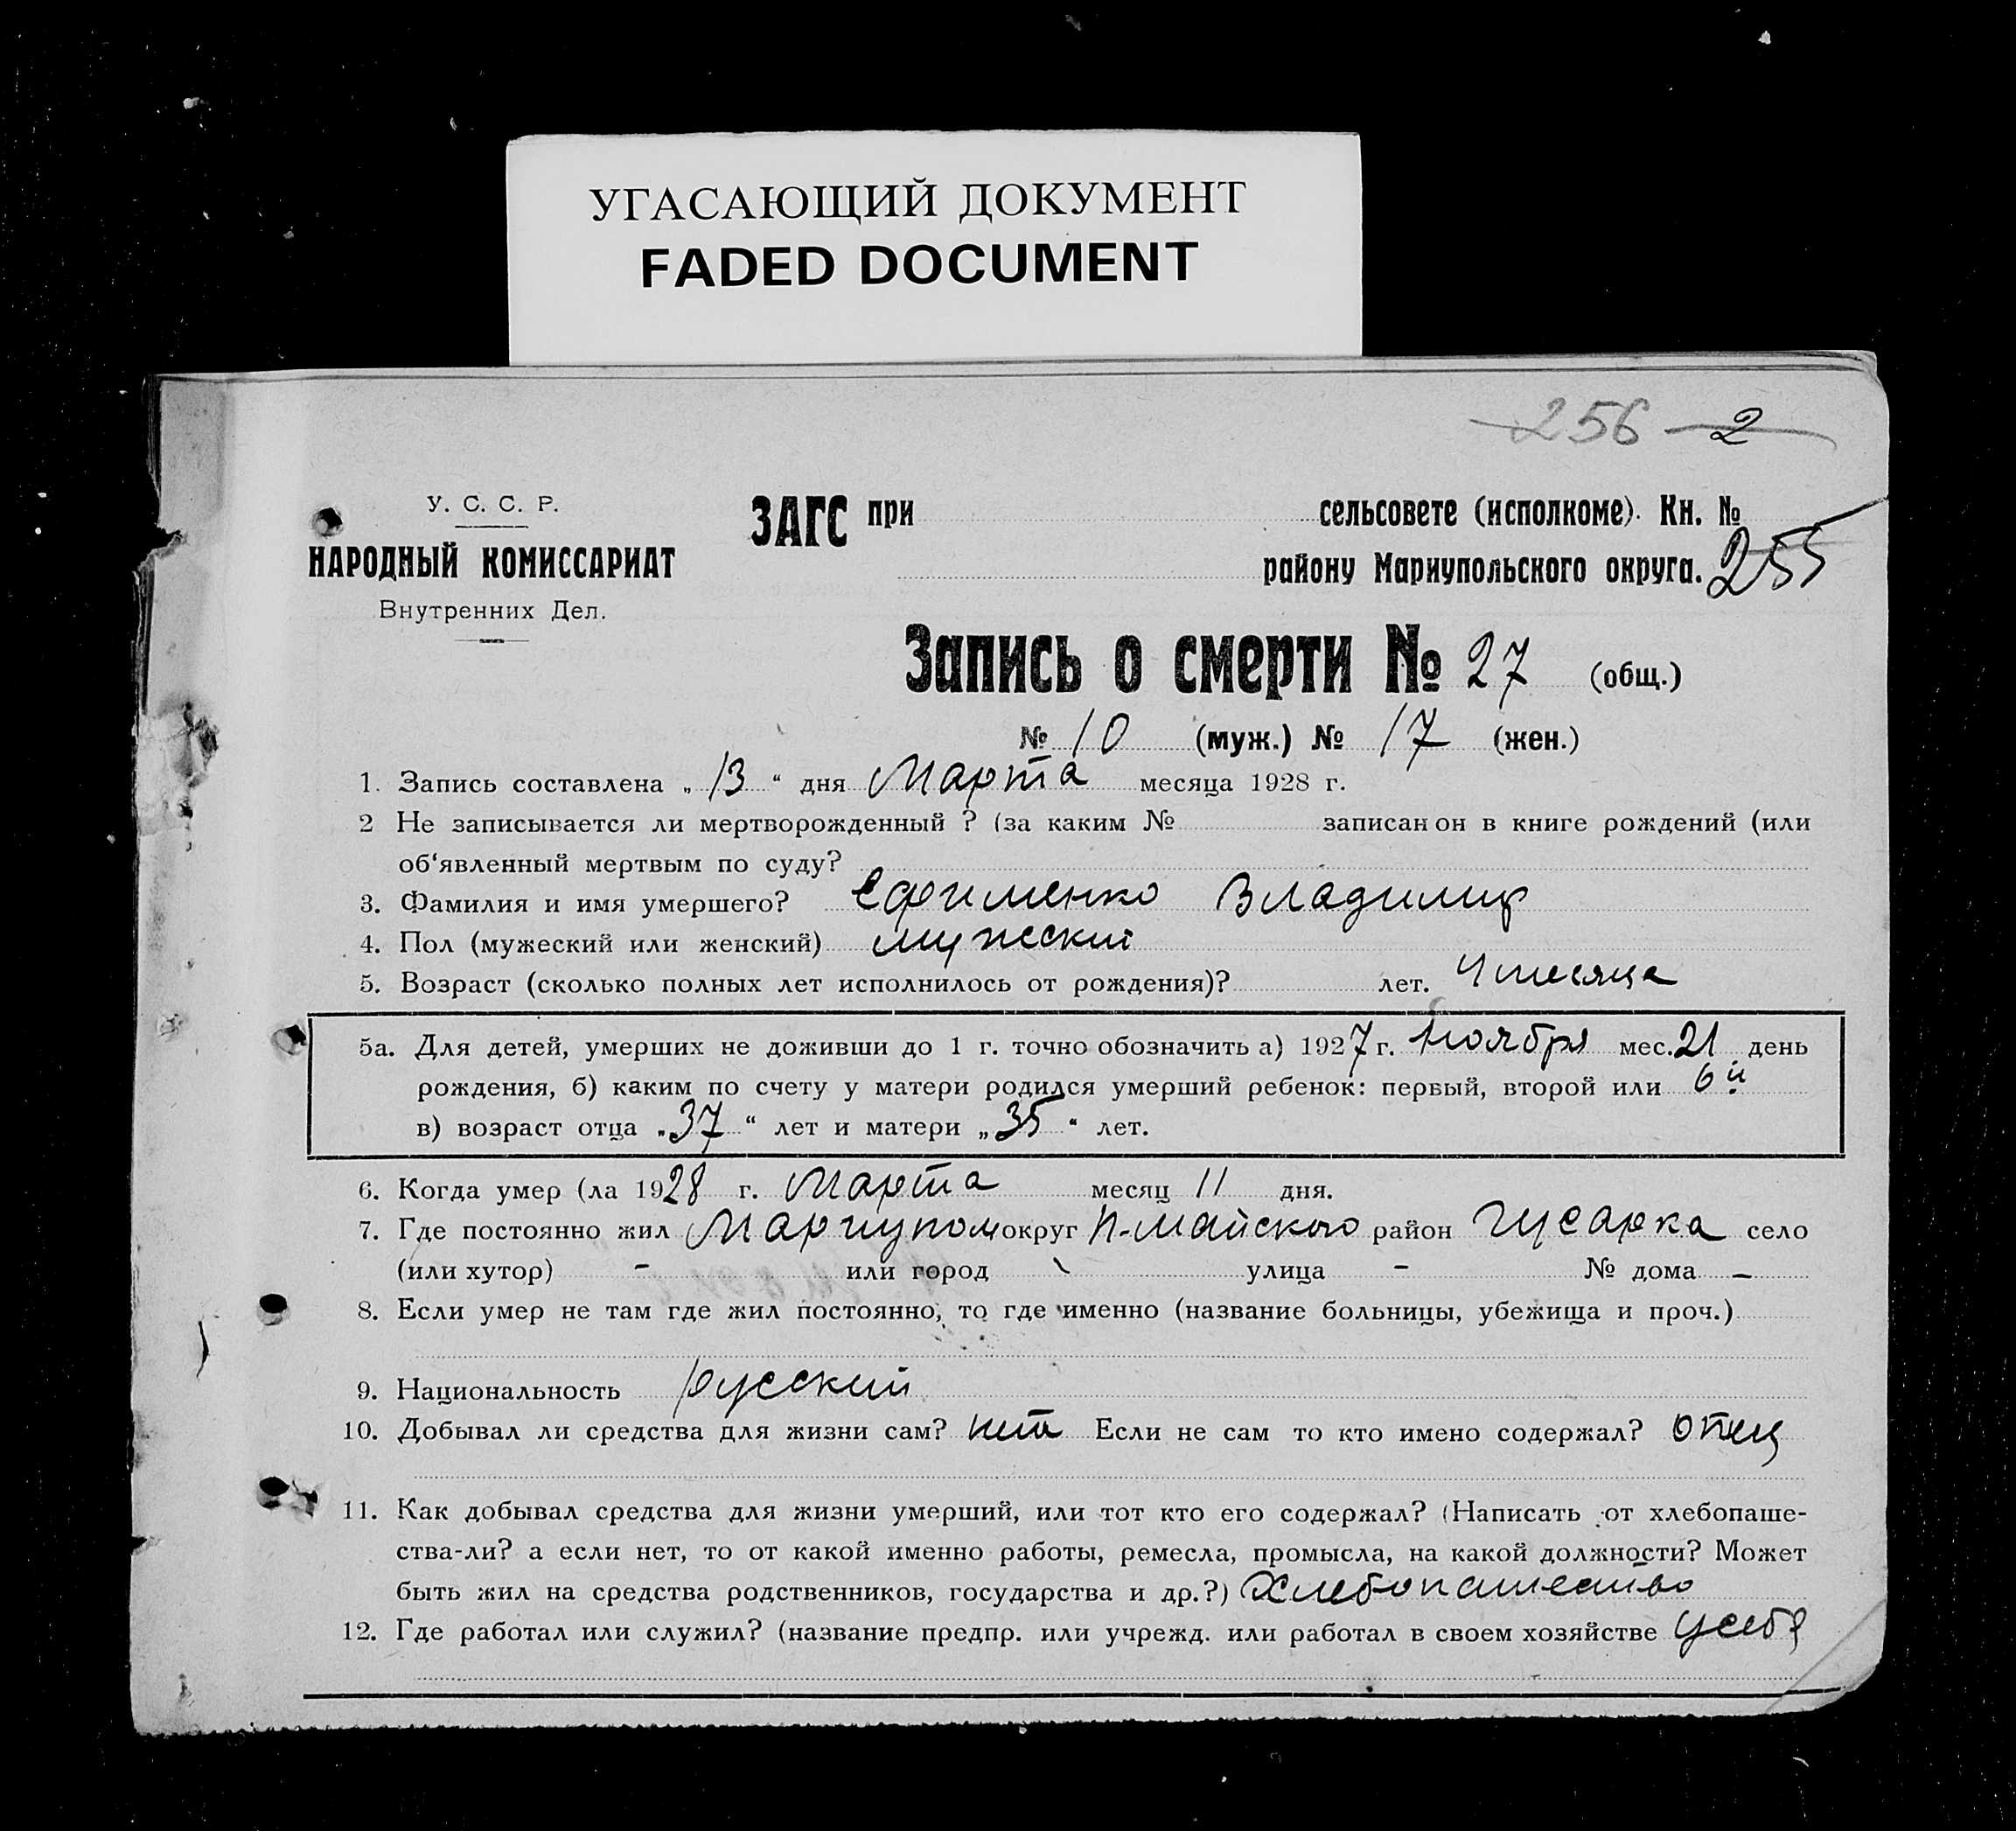 УГАСАЮЩИЙ ДОКУМЕНТ
FADED DOCUMENT
256 2
У. С. С. Р.
НАРОДНЫЙ КОМИССАРИАТ
Внутренних Дел.
ЗАГС при сельсовете (исполкоме). Кн. №
району Мариупольского округа. 255
Запись о смерти № 27 (общ.)
№ 10 (муж.) № 17 (жен.)
1. Запись составлена „ 13 “ дня Марта месяца 1928 г.
2 Не записывается ли мертворожденный ? (за каким № записан он в книге рождений (или
об‘явленный мертвым по суду?
3. Фамилия и имя умершего? Ефименко Владимир
4. Пол (мужеский или женский) мужеский
5. Возраст (сколько полных лет исполнилось от рождения)? лет. 4 месяца
5а. Для детей, умерших не доживши до 1 г. точно обозначить а) 1927 г. Ноября мес. 21 день
рождения, б) каким по счету у матери родился умерший ребенок: первый, второй или 6й
в) возраст отца „ 37 “ лет и матери „ 35 “ лет.
6. Когда умер (ла 1928 г. Марта месяц 11 дня.
7. Где постоянно жил Мариупол округ П-Майского район Гусарка село
(или хутор) - или город - улица - № дома -
8. Если умер не там где жил постоянно, то где именно (название больницы, убежища и проч.)
9. Национальность русский
10. Добывал ли средства для жизни сам? нет Если не сам то кто имено содержал? отец
11. Как добывал средства для жизни умерший, или тот кто его содержал? (Написать от хлебопаше-
ства-ли? а если нет, то от какой именно работы, ремесла, промысла, на какой должности? Может
быть жил на средства родственников, государства и др.?) Хлебопашество
12. Где работал или служил? (название предпр. или учрежд. или работал в своем хозяйстве у себя